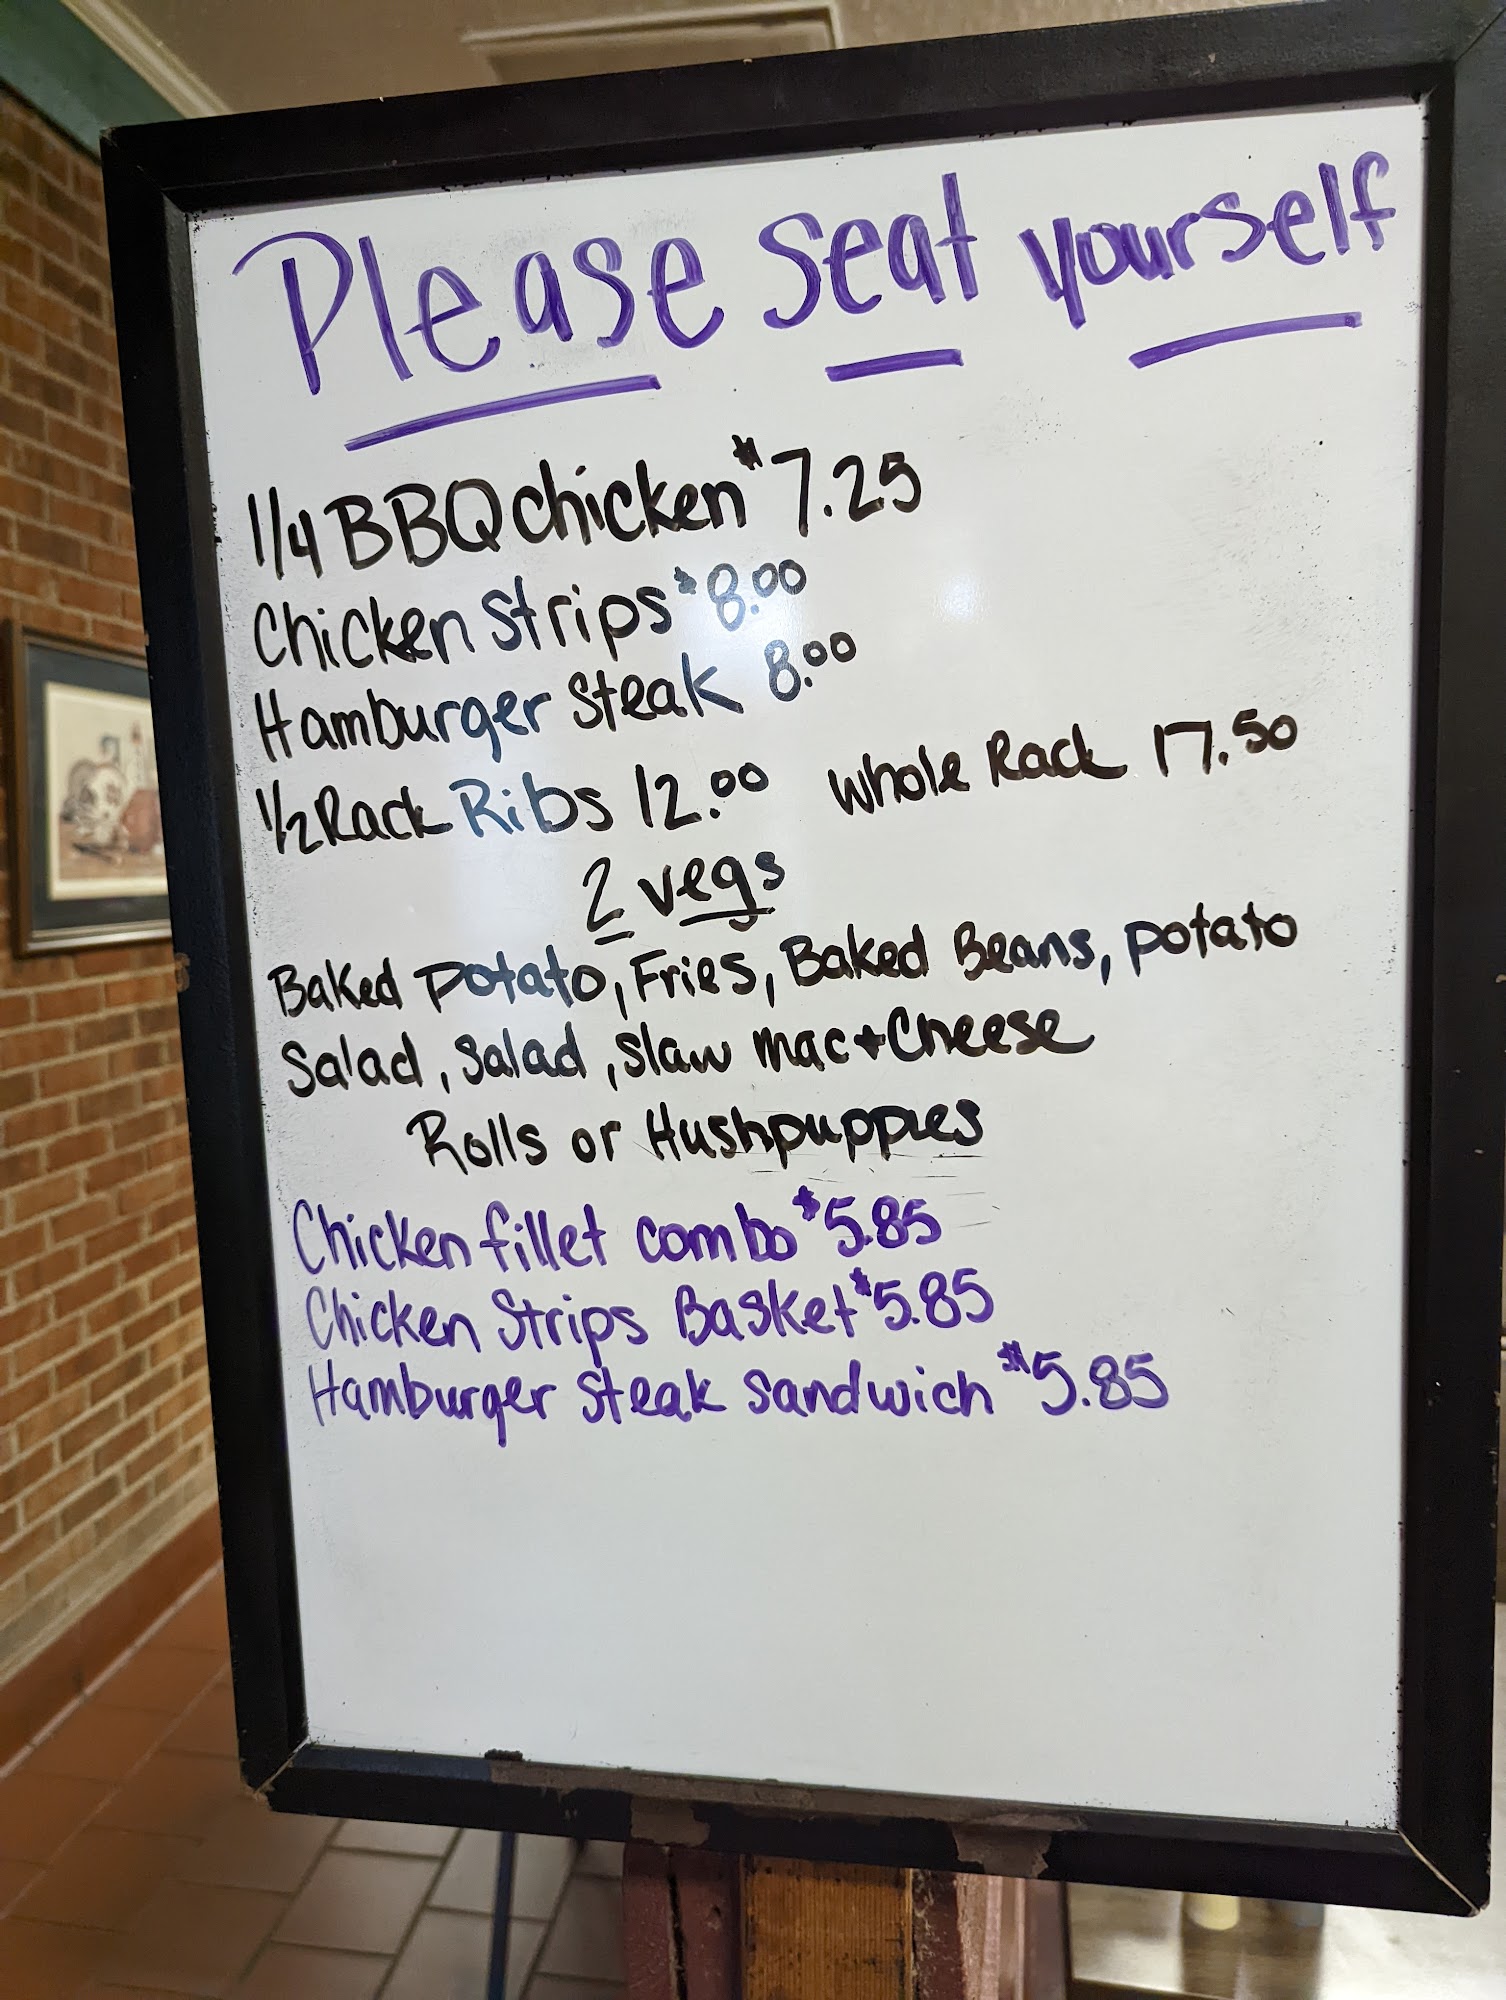 Please seat yourself
1/4 BBQ chicken $7.25
Chicken Strips $8.00
Hamburger Steak 8.00
1/2 Rack Ribs 12.00 whole Rack 17.50
2 vegs
Baked potato, Fries, Baked Beans, potato
Salad, Salad, Slaw mac + Cheese
Rolls or Hushpuppies
Chicken fillet combo $5.85
Chicken Strips Basket $5.85
Hamburger Steak Sandwich $5.85